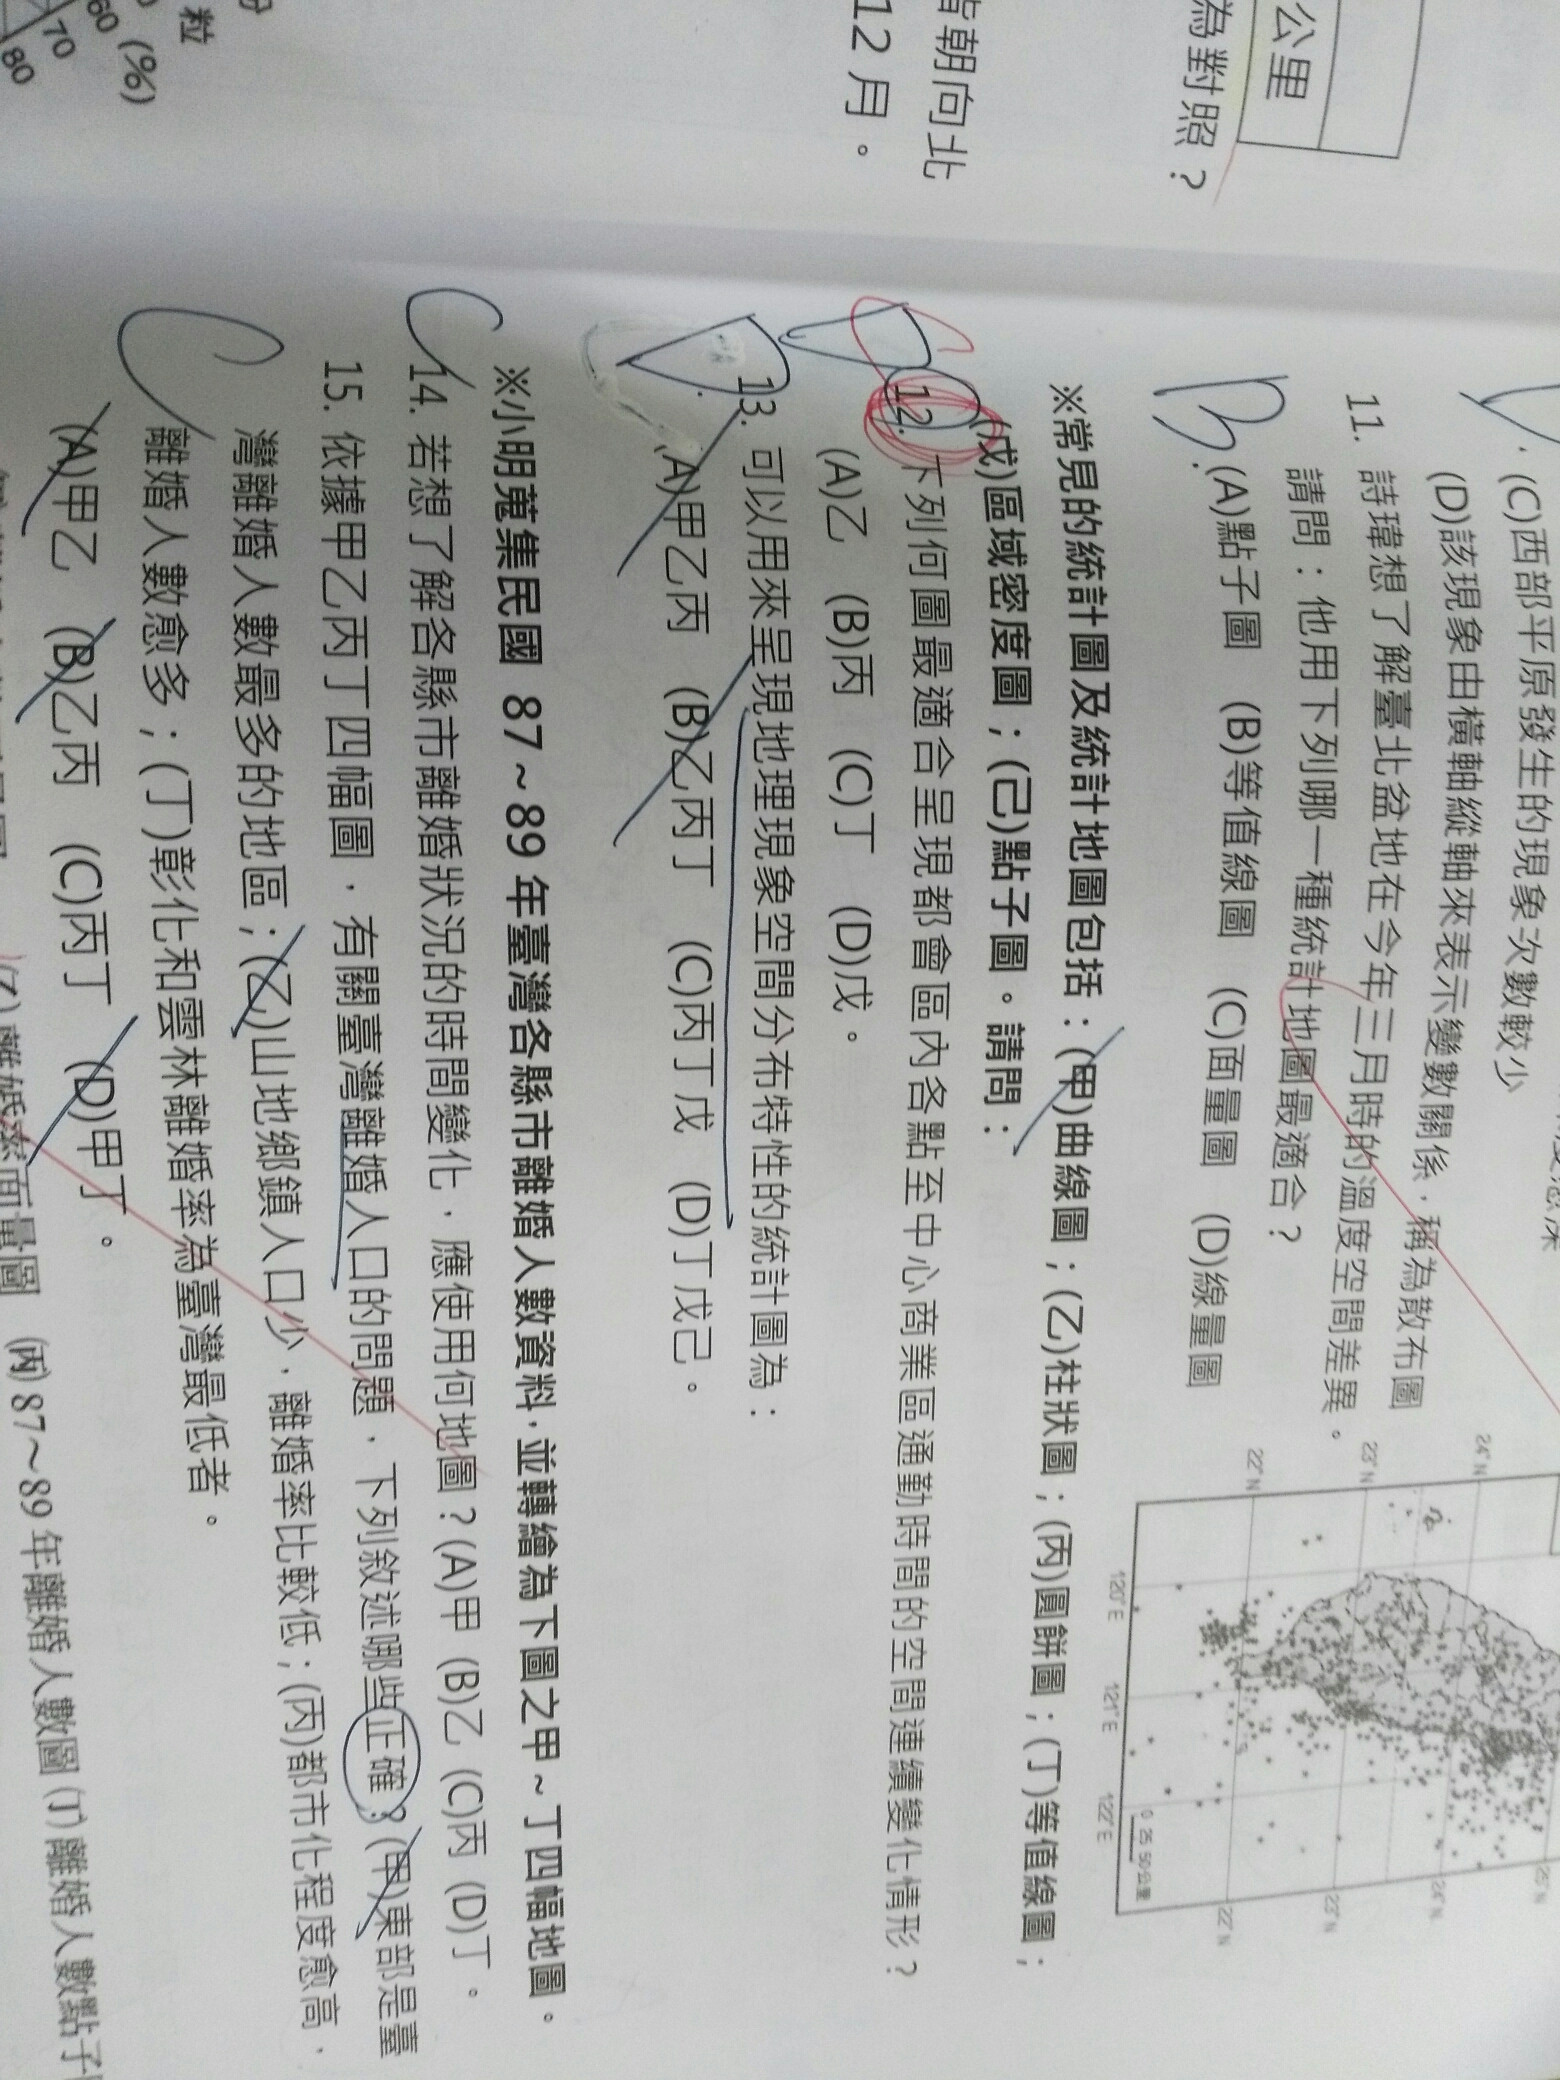 公里
為對照？
指朝向北
12 月。
粒
60
70
80
(%)
(C)西部平原發生的現象次數較少
(D)該現象由橫軸縱軸來表示變數關係，稱為散布圖
11. 詩瑋想了解臺北盆地在今年三月時的溫度空間差異。
請問：他用下列哪一種統計地圖最適合？
B
(A)點子圖 (B)等值線圖 (C)面量圖 (D)線量圖
24°N
23°N
22°N
120°E
121°E
122°E
0 25 50公里
22°N
23°N
24°N
25°N
※常見的統計圖及統計地圖包括：(甲)曲線圖；(乙)柱狀圖；(丙)圓餅圖；(丁)等值線圖；
(戊)區域密度圖；(己)點子圖。請問：
12. 下列何圖最適合呈現都會區內各點至中心商業區通勤時間的空間連續變化情形？
(A)乙 (B)丙 (C)丁 (D)戊。
D
13. 可以用來呈現地理現象空間分布特性的統計圖為：
(A)甲乙丙 (B)乙丙丁 (C)丙丁戊 (D)丁戊己。
※小明蒐集民國 87～89 年臺灣各縣市離婚人數資料，並轉繪為下圖之甲～丁四幅地圖。
C
14. 若想了解各縣市離婚狀況的時間變化，應使用何地圖？(A)甲 (B)乙 (C)丙 (D)丁。
15. 依據甲乙丙丁四幅圖，有關臺灣離婚人口的問題，下列敘述哪些正確？(甲)東部是臺
灣離婚人數最多的地區；(乙)山地鄉鎮人口少，離婚率比較低；(丙)都市化程度愈高，
離婚人數愈多；(丁)彰化和雲林離婚率為臺灣最低者。
C
(A)甲乙 (B)乙丙 (C)丙丁 (D)甲丁。
(乙)離婚率面量圖 (丙)87～89年離婚人數圖 (丁)離婚人數點子